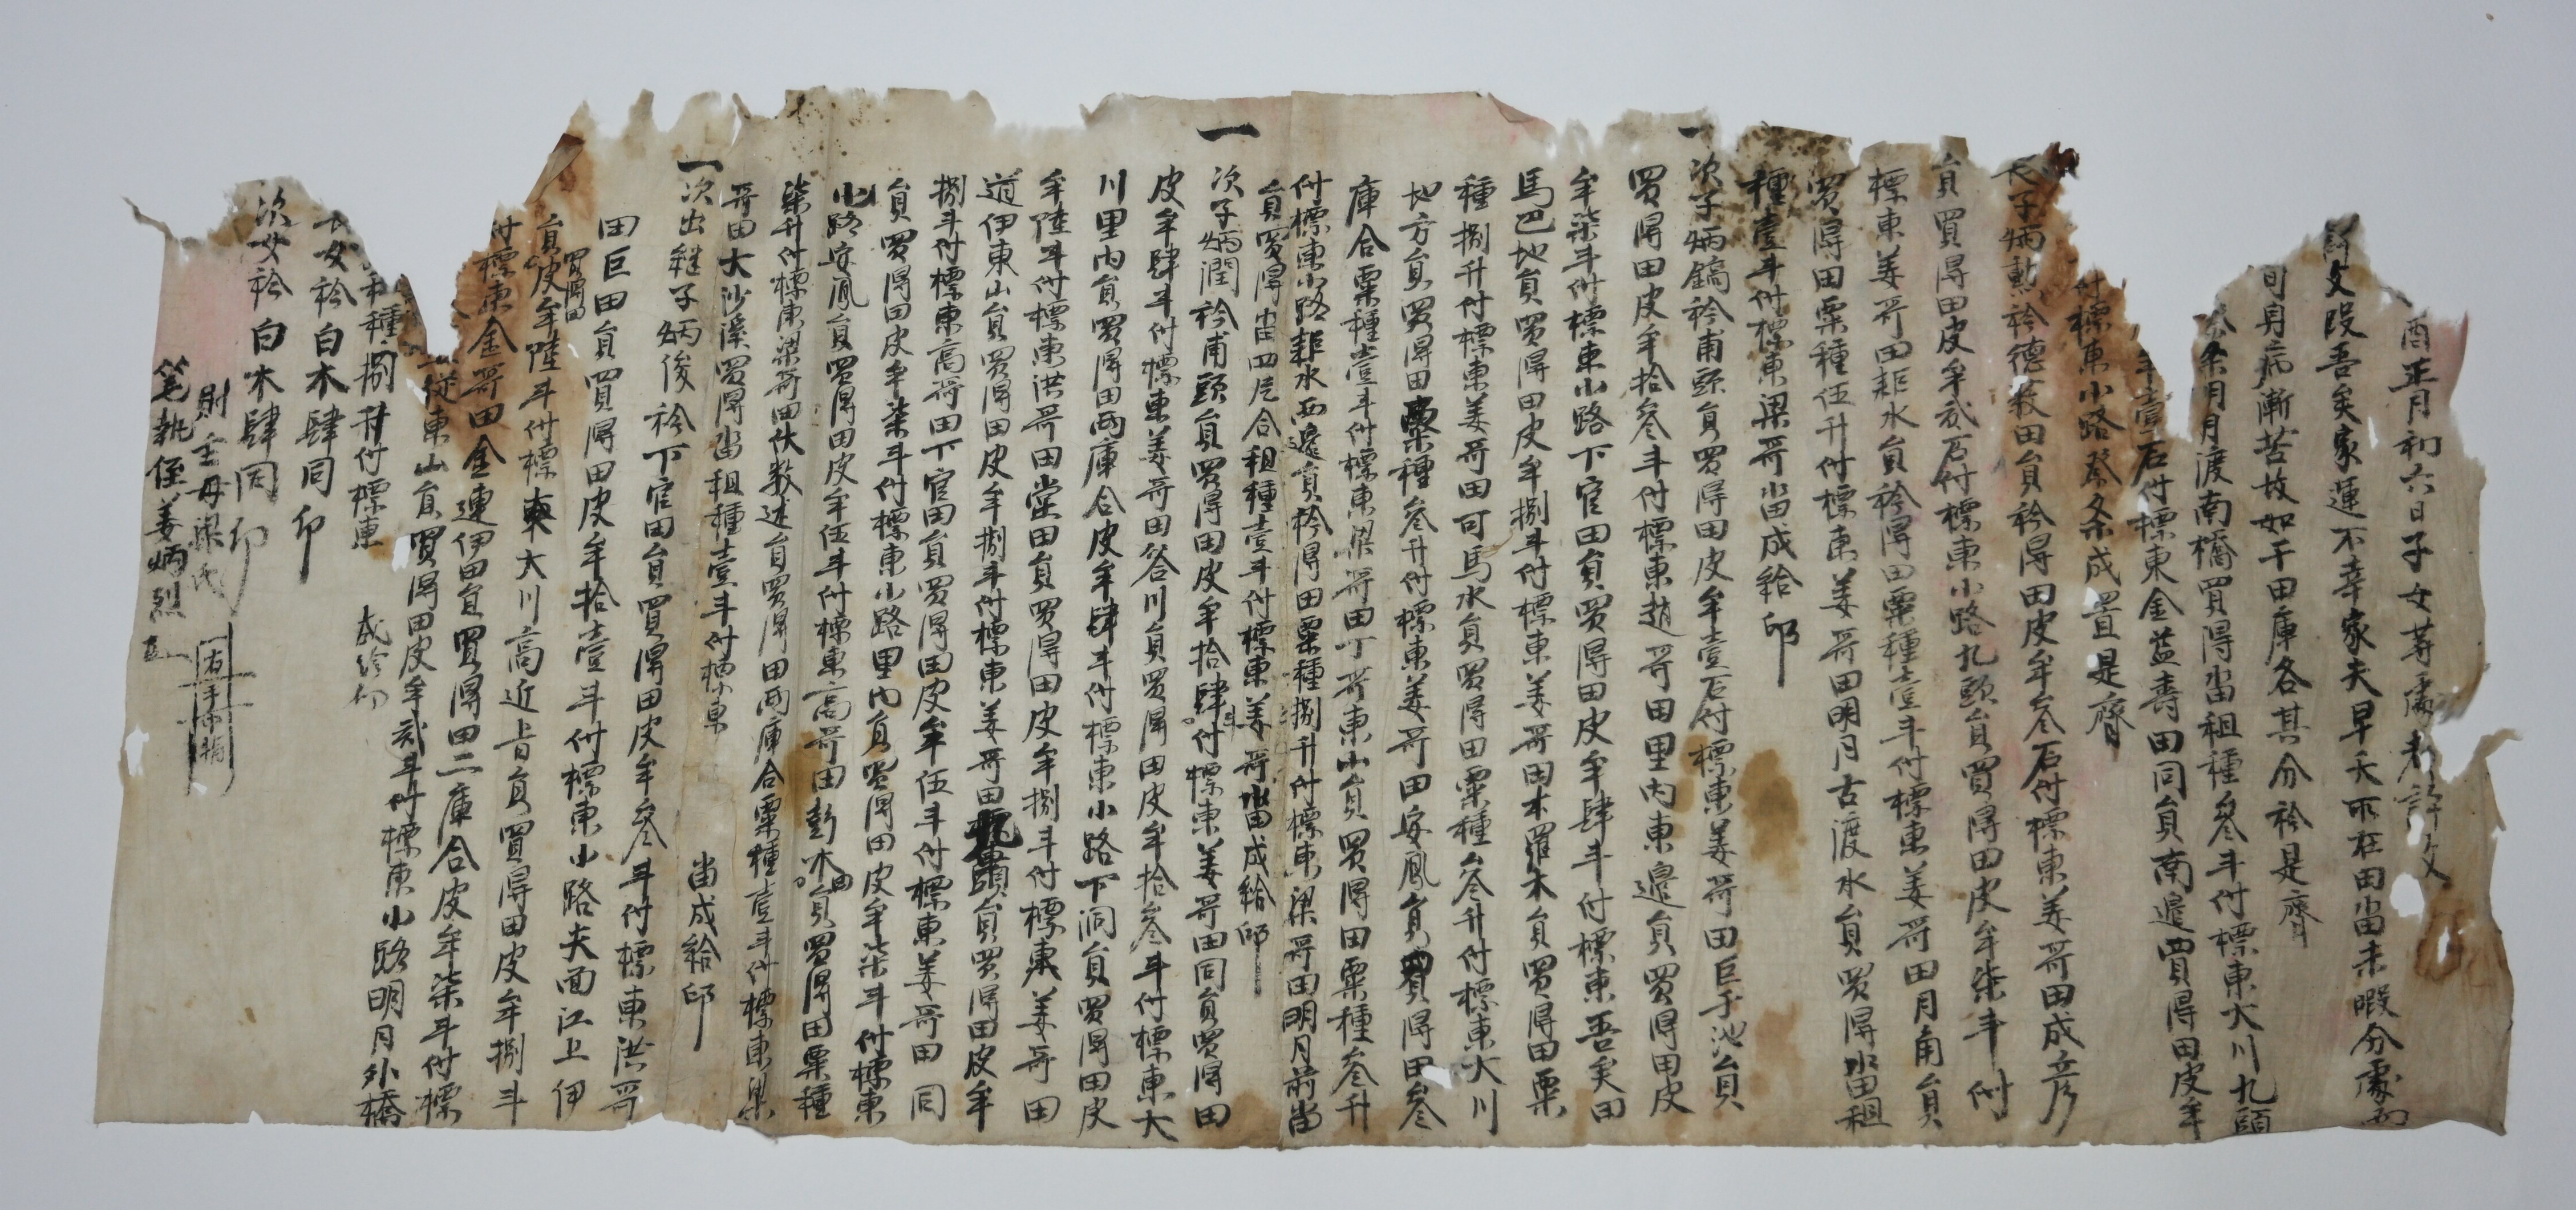 酉正月初六日子女等處許文
許文段吾矣家運不幸家夫早夭不在田畓未暇分處而
旬身病漸苦故如干田庫各其分衿是齊
祭条明月渡南橋買得畓租種參斗付標東大川九頭
牟壹石付標東金益壽田同員南邊買得田皮牟
付標東小路祭条成置是齊
長子炳勳衿德薮田員衿得田皮牟參石付標東姜哥田成彦
員買得田皮牟貳石付標東小路九頭員買得田皮牟柒斗付
標東姜哥田耟水員衿得田粟種壹斗付標東姜哥田月角員
買得田粟種伍升付標東姜哥田明月古渡水員買得畓租
種壹斗付標東梁哥畓成給印
一次子炳鎬衿甫頭員買得田皮牟壹石付標東姜哥田巨于池員
買得田皮牟拾參斗付標東趙哥田里內東邊員買得田皮
牟柒斗付標東小路下官田員買得田皮牟肆斗付標東吾矣田
馬巴地員買得田皮牟捌斗付標東姜哥田木羅木員買得田粟
種捌升付標東姜哥田可馬水員買得田粟種參升付標東大川
地方員買得田粟種參升付標東姜哥田安鳳員買得田參
庫合粟種壹斗付標東梁哥田丁哥東山員買得田粟種參升
付標東小路耟水西邊員衿得田粟種捌升付標東梁哥田明月前畓
員買得畓四庀合租種壹斗付標東姜哥畓成給印
一次子炳潤衿甫頭員買得田皮牟拾肆斗付標東姜哥田同員買得田
皮牟肆斗付標東姜哥田谷川員買得田皮牟拾參斗付標東大
川里內員買得田兩庫合皮牟肆斗付標東小路下洞員買得田皮
牟陸斗付標東洪哥田堂田員買得田皮牟捌斗付標東姜哥田
道伊東山員買得田皮牟捌斗付標東姜哥田九頭員買得田皮牟
捌斗付標東高哥田下官田員買得田皮牟伍斗付標東姜哥田同
員買得田皮牟柒斗付標東小路里內員買得田皮牟柒斗付標東
小路安鳳員買得田皮牟伍斗付標東高哥田彭木田員買得田粟種
柒升付標東梁哥田伏数述員買得田兩庫合粟種壹斗付標東梁
哥田大沙溪買得畓租種壹斗付標東
畓成給印
一次出継子炳俊衿下官田員買得田皮牟參斗付標東洪哥
田巨田員買得田皮牟拾壹斗付標東小路夫面江上伊
員買得田皮牟陸斗付標東大川高近音員買得田皮牟捌斗
付標東金哥田金連伊田員買得田二庫合皮牟柒斗付標
從東山員買得田皮牟貳斗付標東小路明月外橋
種捌升付標東
成給印
長女衿白木肆同印
次女衿白木肆同印
財主母梁氏
右手中指
筆執侄姜炳烈